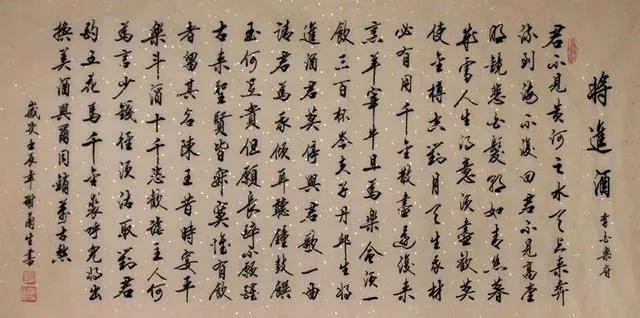 將進酒
李白樂府
君不見黃河之水天上來奔
流到海不復回君不見高堂
明鏡悲白髮朝如青絲暮
成雪人生得意須盡歡莫
使金樽空對月天生我材
必有用千金散盡還復來
烹羊宰牛且為樂會須一
飲三百杯岑夫子丹邱生將
進酒君莫停與君歌一曲
請君為我傾耳聽鐘鼓饌
玉何足貴但願長醉不願醒
古來聖賢皆寂寞惟有飲
者留其名陳王昔時宴平
樂斗酒十千恣歡謔主人何
為言少錢徑須沽取對君
酌五花馬千金裘呼兒將出
換美酒與爾同銷萬古愁
歲次壬辰年謝生書